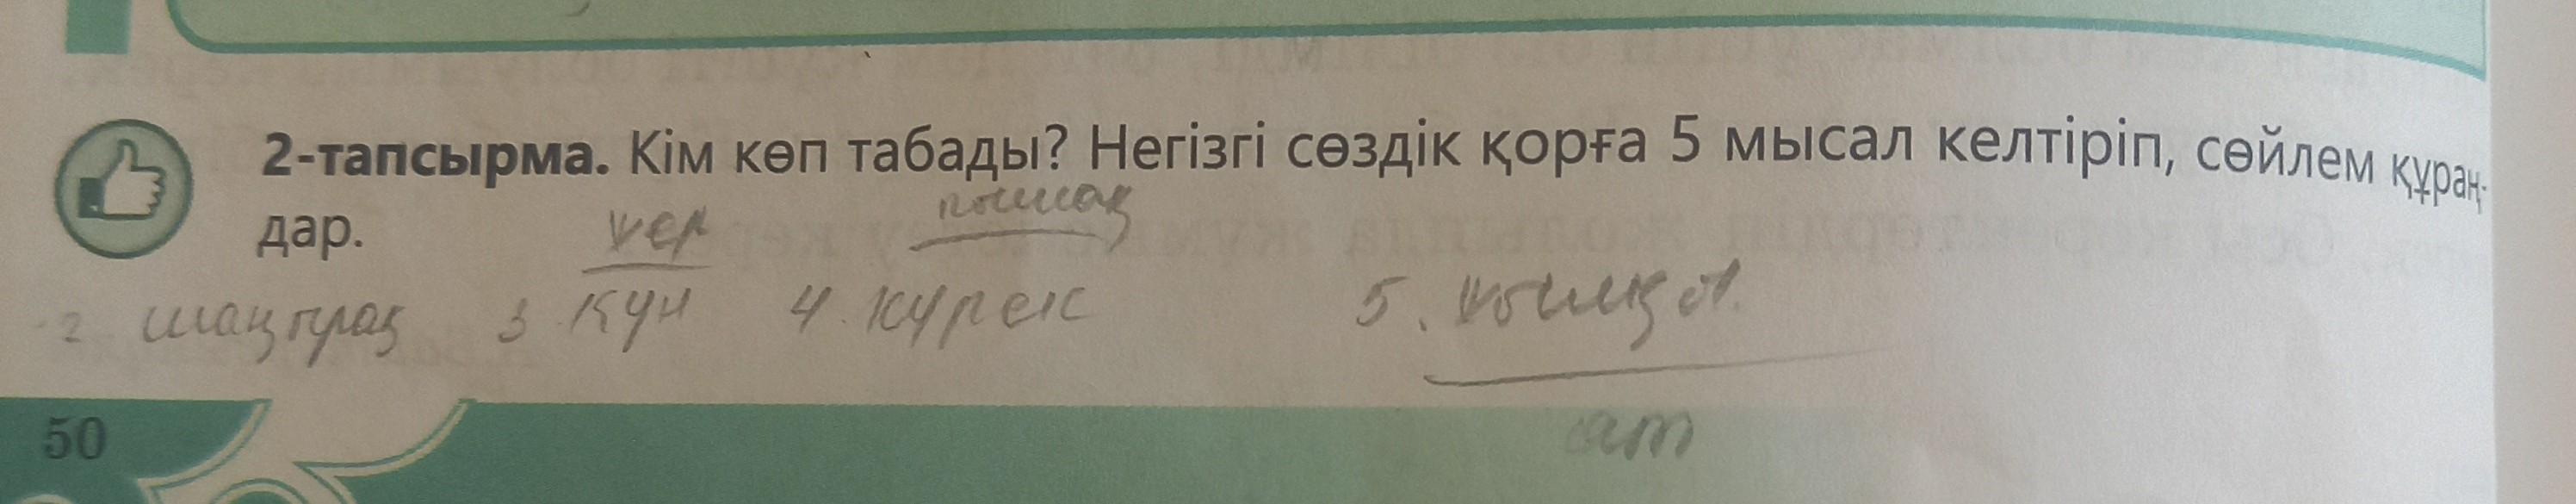 2-тапсырма. Кім көп табады? Негізгі сөздік қорға 5 мысал келтіріп, сөйлем құраң-
дар.
жер пышақ
2. шаңырақ 3. Күн 4. күрек 5. жылқы.
ат
50